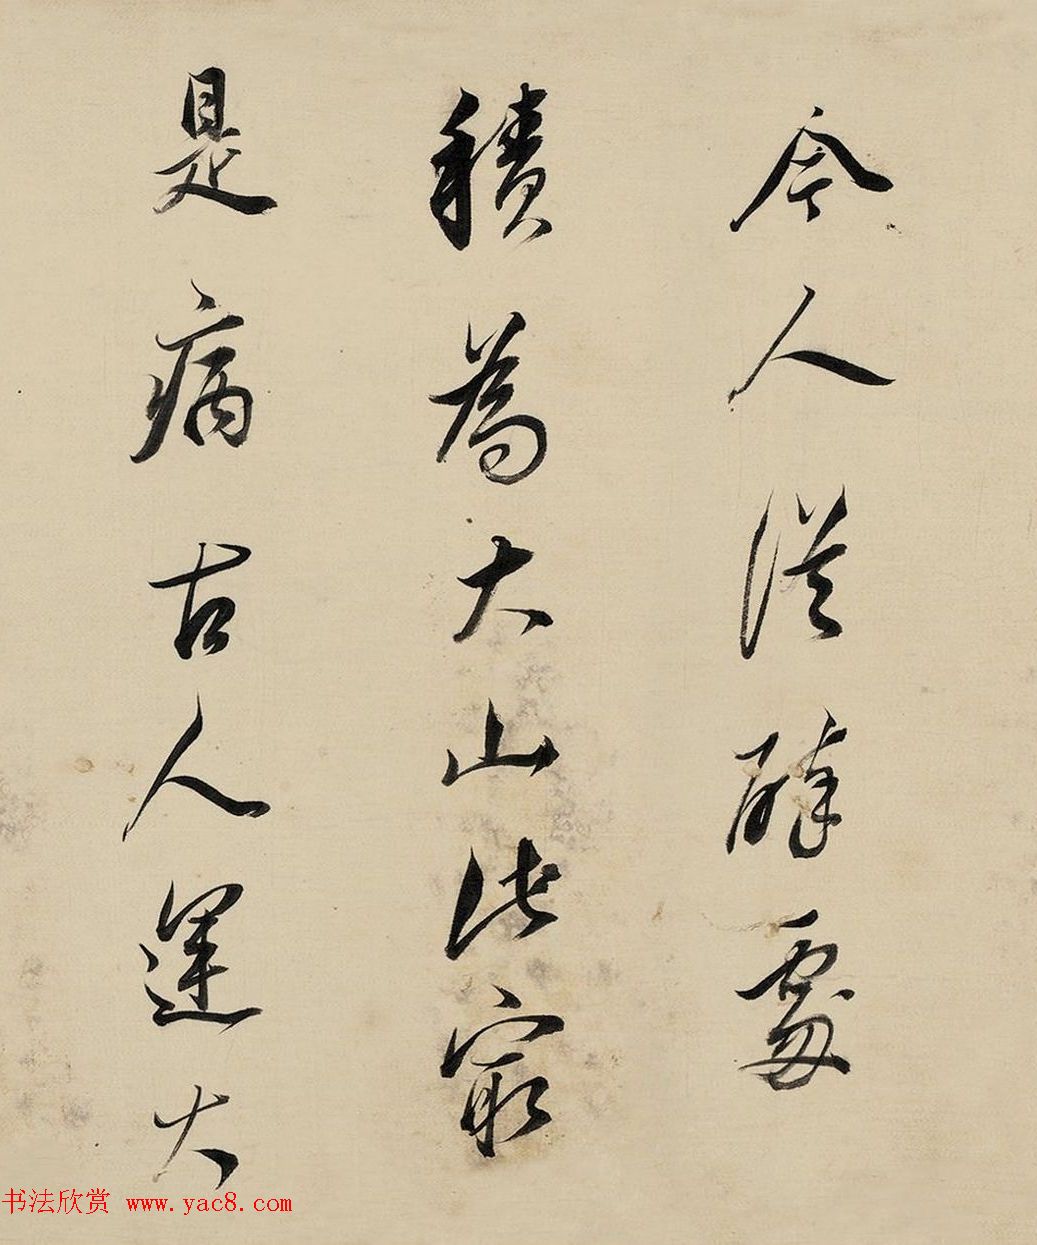 今人從碎處
積為大山此最
是病古人運大
书法欣赏 www.yac8.com